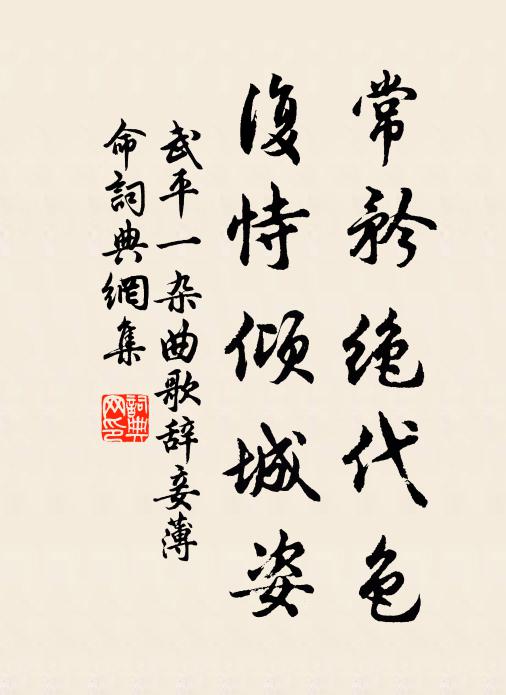 常矜绝代色
復恃倾城姿
武平一杂曲歌辞妾薄
命詞典網集
詞典
网印